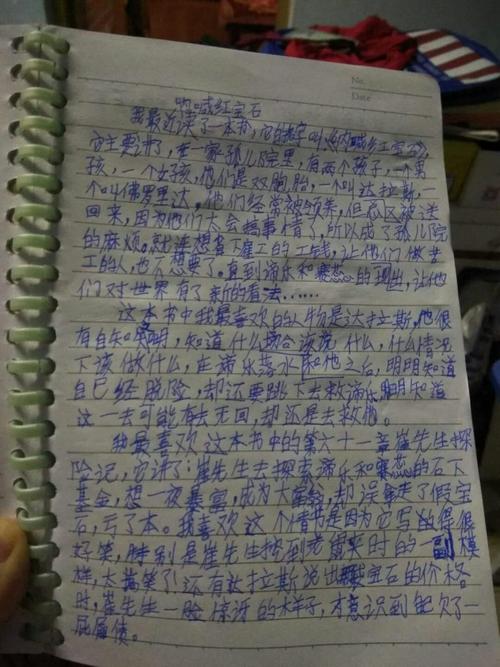 No.
Date
呐喊红宝石
我最近读了一本书,它的名字叫《呐喊红宝石》,
它主要讲了,在一家孤儿院里,有两个孩子,一个男
孩,一个女孩,他们是双胞胎,一个叫达拉斯,一
个叫佛罗里达。他们经常被领养,但总又被送
回来,因为他们太会搞事情了,所以成了孤儿院
的麻烦。就连想省下雇工的工钱,让他们做苦
工的人,也不想要了。直到蒂乐和寒蕊的出现,让他
们对世界有了新的看法……
这本书中我最喜欢的人物是达拉斯,他很
有自知之明,知道什么场合该说什么,什么情况
下该做什么,在蒂乐落水和他之后,明明知道
自己经脱险,却还要跳下去救蒂乐,明知道
这一去可能有去无回,却还是去救他。
我最喜欢这本书中的第六十一章崔先生探
险记,它讲了:崔先生去探索蒂乐和寒蕊的石下
基金,想一夜暴富,成为大富翁,却误拿走了假宝
石,亏了本。我喜欢这个情书是因为它写的得很
好笑,特别是崔先生挖到宝贝时的一副模
样,太搞笑了!还有达拉斯说出宝石的价格
时,崔先生一脸惊讶的样子,才意识到自己欠了一
屁屋债。